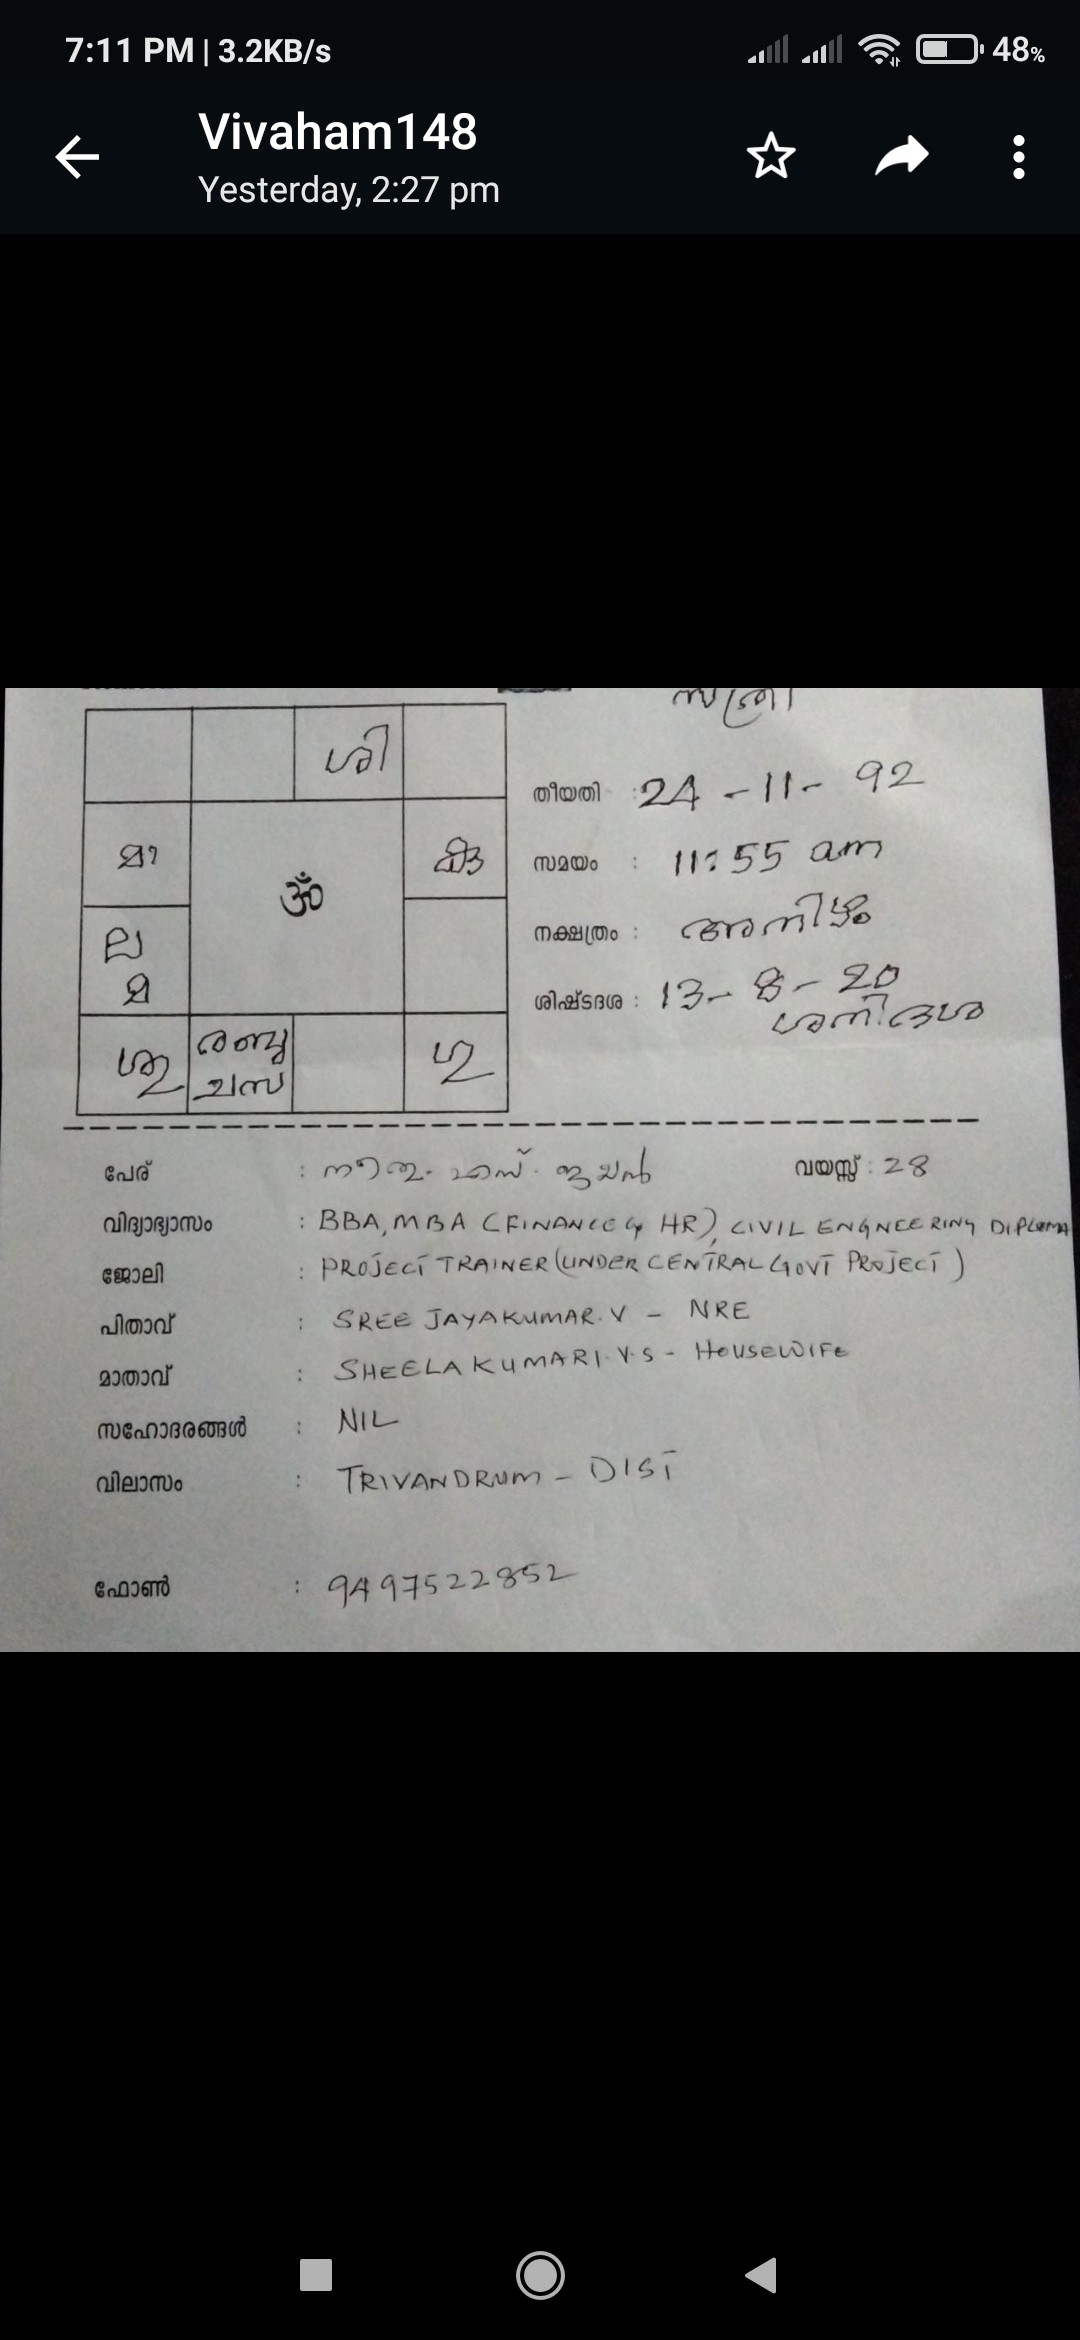 7:11 PM | 3.2KB/s
48%
Vivaham148
Yesterday, 2:27 pm
സ്ത്രീ
ശി
മാ
കു
ॐ
ല
മ
ശു
രബു
ചസ
ഗു
തീയതി : 24-11-92
സമയം : 11:55 am
നക്ഷത്രം : അനിഴം
ശിഷ്ടദശ : 13-8-20
ശനിദശ
പേര് : എസ്. ജയൻ വയസ്സ് : 28
വിദ്യാഭ്യാസം : BBA, MBA (FINANCE & HR), CIVIL ENGNEERING DIPLOMA
ജോലി : PROJECT TRAINER (UNDER CENTRAL GOVT PROJECT)
പിതാവ് : SREE JAYAKUMAR.V - NRE
മാതാവ് : SHEELAKUMARI.V.S - HOUSEWIFE
സഹോദരങ്ങൾ : NIL
വിലാസം : TRIVANDRUM - DIST
ഫോൺ : 9497522852